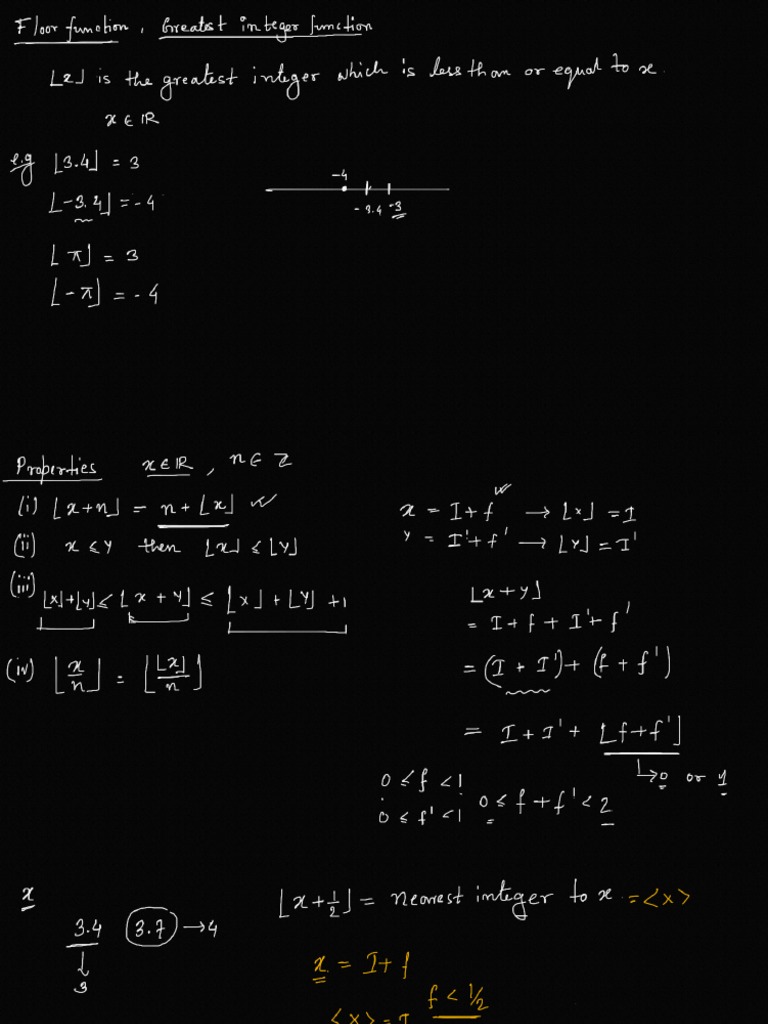 Floor function, Greatest integer function
⌊x⌋ is the greatest integer which is less than or equal to x.
x ∈ ℝ
e.g ⌊3.4⌋ = 3
⌊-3.4⌋ = -4
-4
-3.4 -3
⌊π⌋ = 3
⌊-π⌋ = -4
Properties x ∈ ℝ, n ∈ Z
(i) ⌊x+n⌋ = n + ⌊x⌋ ✓
(ii) x ≤ y then ⌊x⌋ ≤ ⌊y⌋
(iii) ⌊x⌋+⌊y⌋ ≤ ⌊x + y⌋ ≤ ⌊x⌋ + ⌊y⌋ + 1
(iv) ⌊x/n⌋ = ⌊⌊x⌋/n⌋
x = I + f → ⌊x⌋ = I
y = I' + f' → ⌊y⌋ = I'
⌊x + y⌋
= I + f + I' + f'
= (I + I') + (f + f')
= I + I' + ⌊f + f'⌋
↳ 0 or 1
0 ≤ f < 1
0 ≤ f' < 1
0 ≤ f + f' < 2
x
3.4 3.7 → 4
↓
3
⌊x + 1/2⌋ = nearest integer to x = <x>
x = I + f
f < 1/2
<x> = I